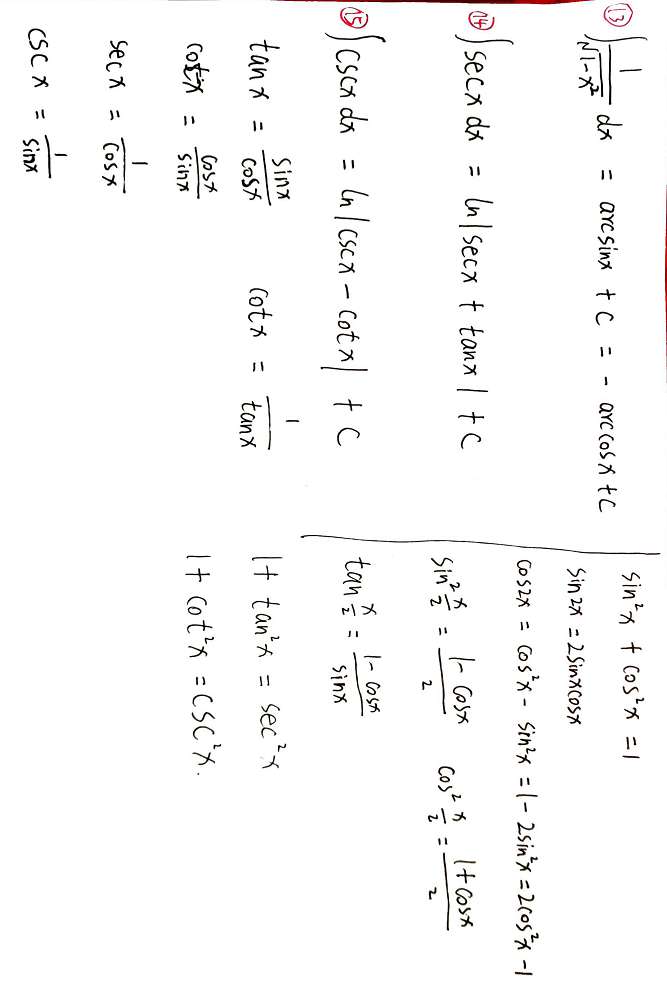 ⑬ ∫ 1/√(1-x²) dx = arcsinx + C = - arccosx + C
⑭ ∫ secx dx = ln|secx + tanx| + C
⑮ ∫ cscx dx = ln|cscx - cotx| + C
tanx = sinx/cosx    cotx = 1/tanx
cotx = cosx/sinx
secx = 1/cosx
cscx = 1/sinx
sin²x + cos²x = 1
sin2x = 2sinxcosx
cos2x = cos²x - sin²x = 1 - 2sin²x = 2cos²x - 1
sin² x/2 = (1 - cosx)/2    cos² x/2 = (1 + cosx)/2
tan x/2 = (1 - cosx)/sinx
1 + tan²x = sec²x
1 + cot²x = csc²x.